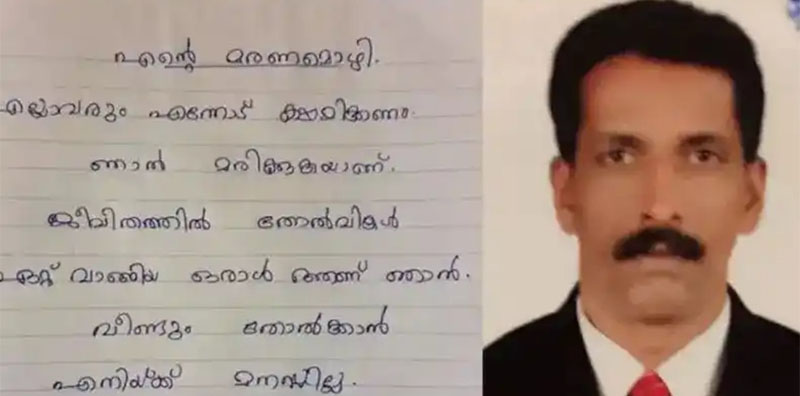 എന്റെ മരണമൊഴി.
എല്ലാവരും എന്നോട് ക്ഷമിക്കണം.
ഞാൻ മരിക്കുകയാണ്.
ജീവിതത്തിൽ തോൽവികൾ
ഏറ്റ് വാങ്ങിയ ഒരാൾ ആണ് ഞാൻ.
വീണ്ടും തോൽക്കാൻ
എനിയ്ക്ക് മനസ്സില്ല.